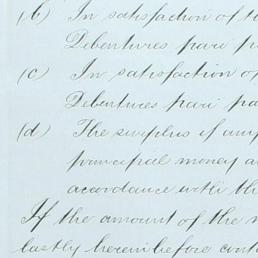 (b) In satisfaction of th
Debentures pari p
(c) In satisfaction of
Debentures pari pa
(d) The surplus if any
principal money a
accordance with the
If the amount of the m
lastly hereinbefore cont